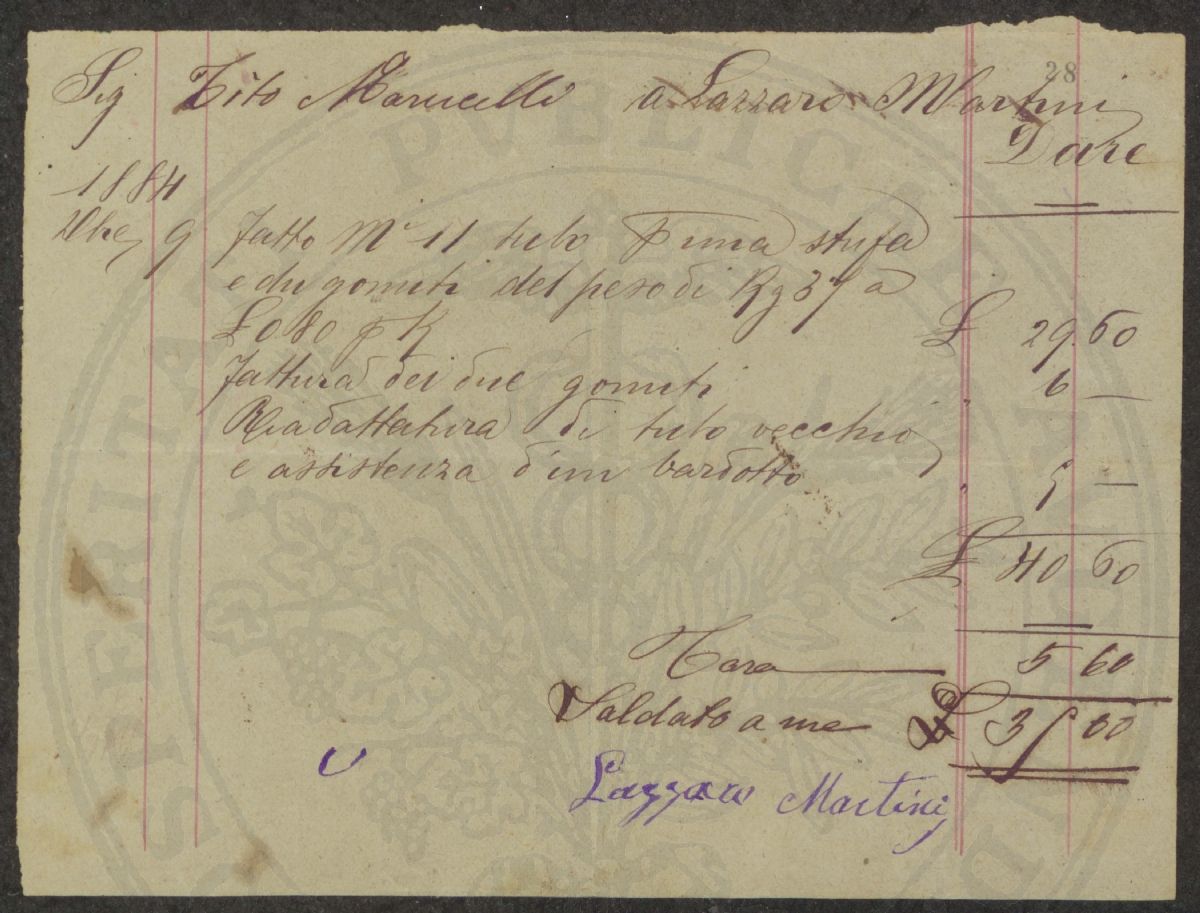 28
Sig Tito Marucelli a Lazzaro Martini
Dare
1884
Xbre 9 Fatto Mi 11 tubo p una stufa
e du gomiti del peso di Kg 37 a
£ 0 80 p K £ 29.60
Fattura dei due gomiti " 6 —
Riadattatura di tubo vecchio
e assistenza d'un bardotto " 5 —
£ 40 60
Tara 5 60
Saldato a me £ 35 00
Lazzaro Martini
PUBLICAE